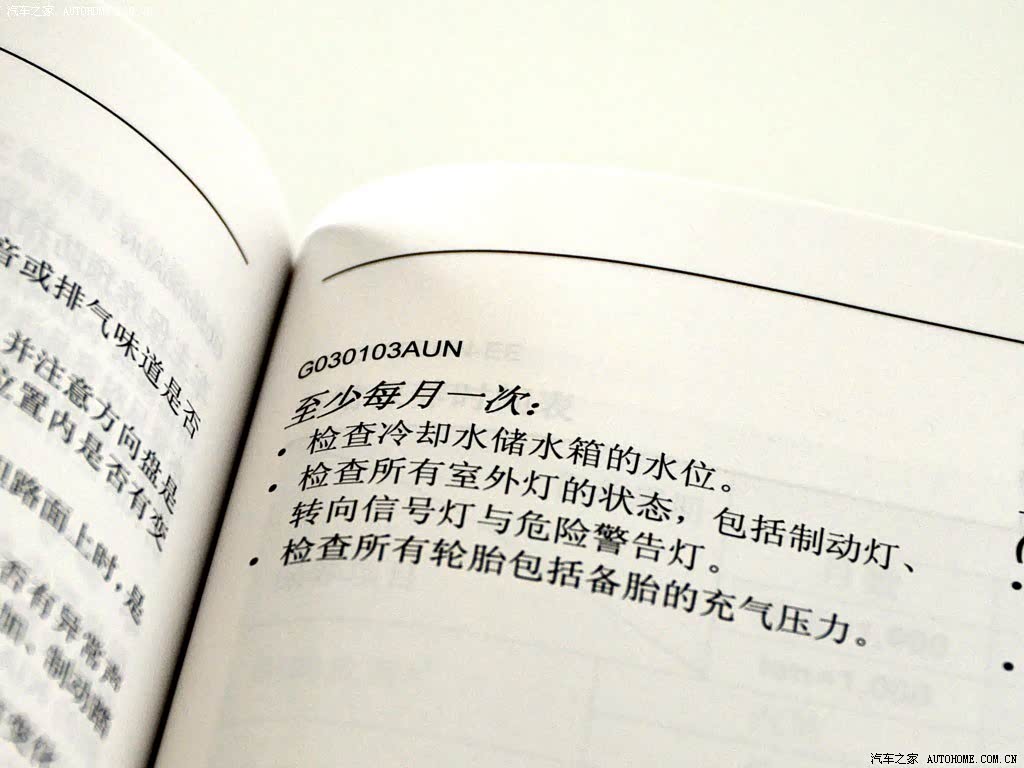 汽车之家 AUTOHOME.COM.CN
音或排气味道是否
并注意方向盘是
位置内是否有变
路面上时,是
否有异常声
制动踏
G030103AUN
至少每月一次:
• 检查冷却水储水箱的水位。
• 检查所有室外灯的状态，包括制动灯、
转向信号灯与危险警告灯。
• 检查所有轮胎包括备胎的充气压力。
汽车之家 AUTOHOME.COM.CN